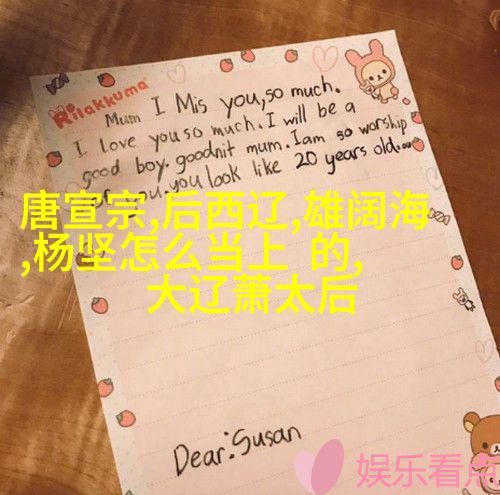 Rilakkuma
Mum I Mis you, so much.
I love you so much. I will be a
good boy. goodnit mum. I am so worship
of you. you look like 20 years old....
唐宣宗,后西辽,雄阔海
,杨坚怎么当上 的,
大辽萧太后
Dear: Susan
娱乐看点